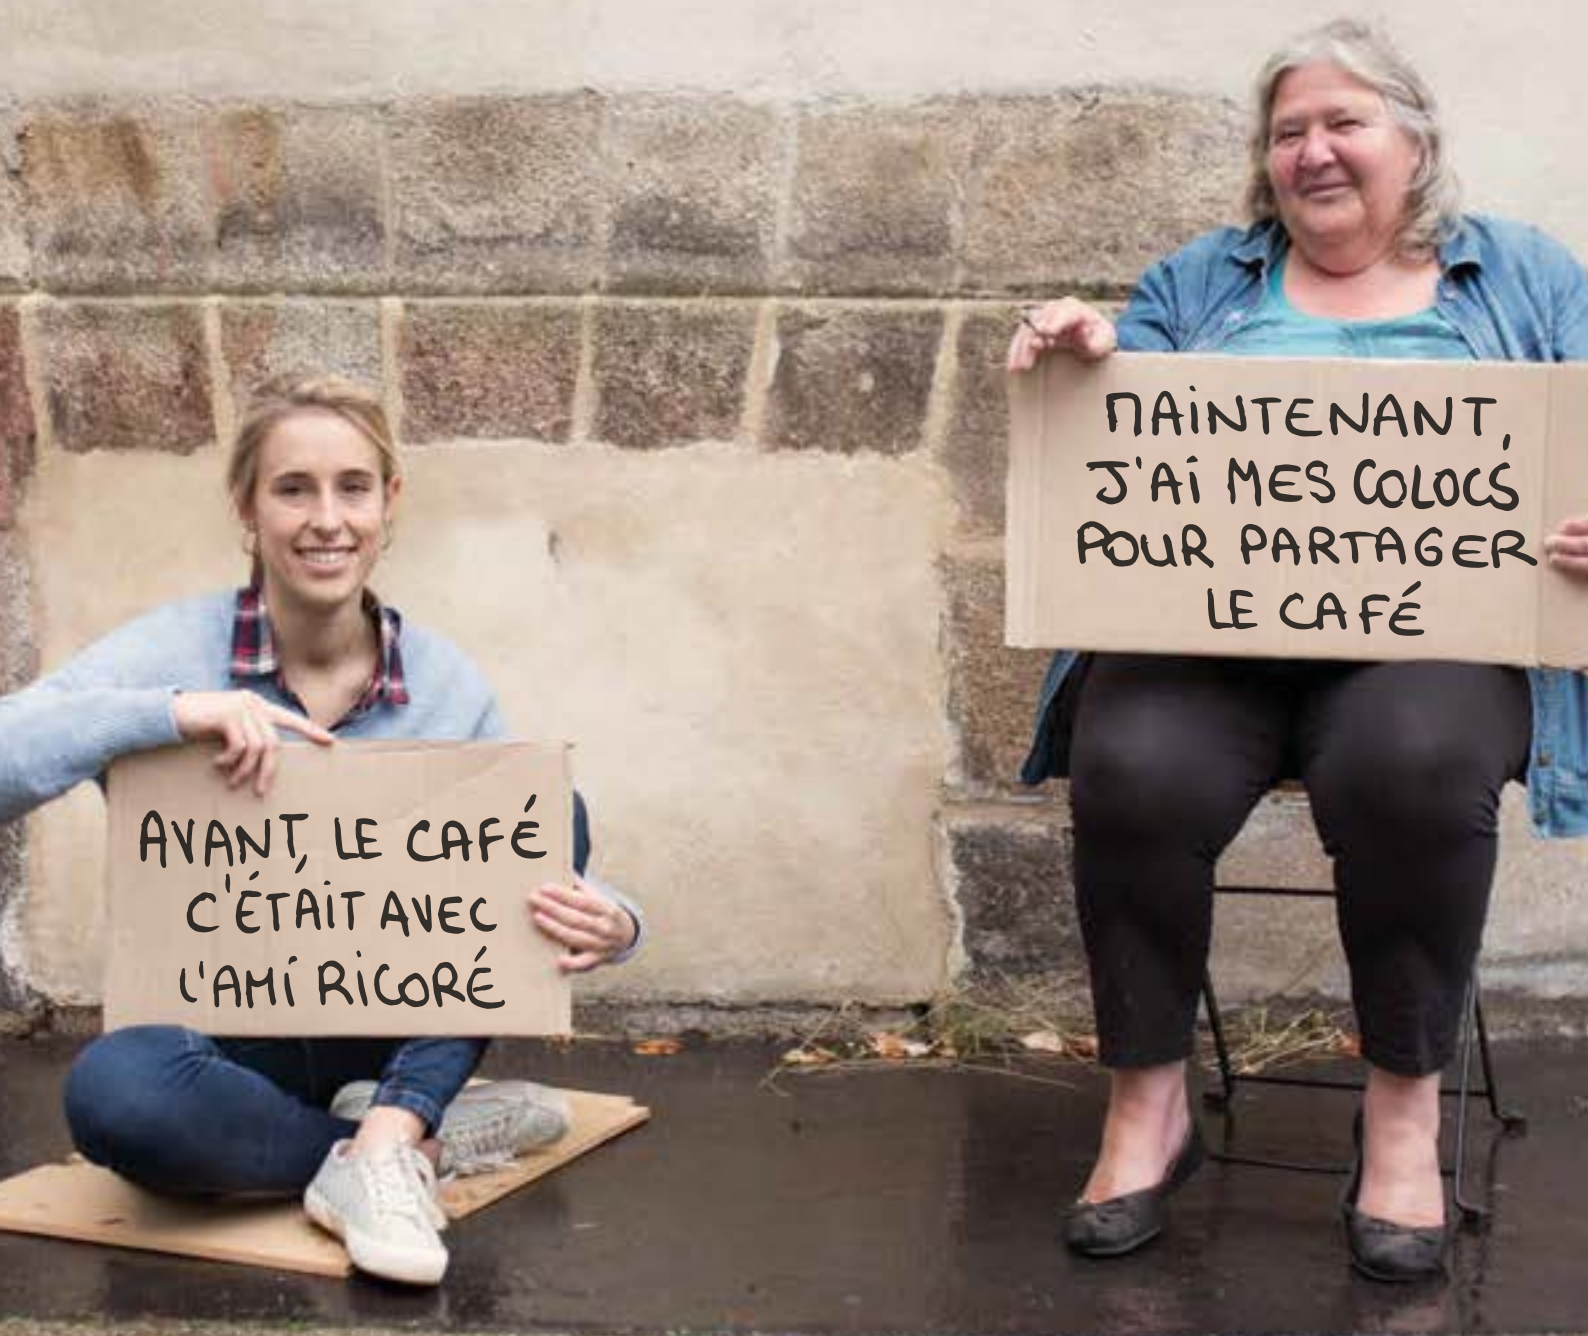 AVANT, LE CAFÉ
C'ÉTAIT AVEC
L'AMI RICORÉ
MAINTENANT,
J'AI MES COLOCS
POUR PARTAGER
LE CAFÉ